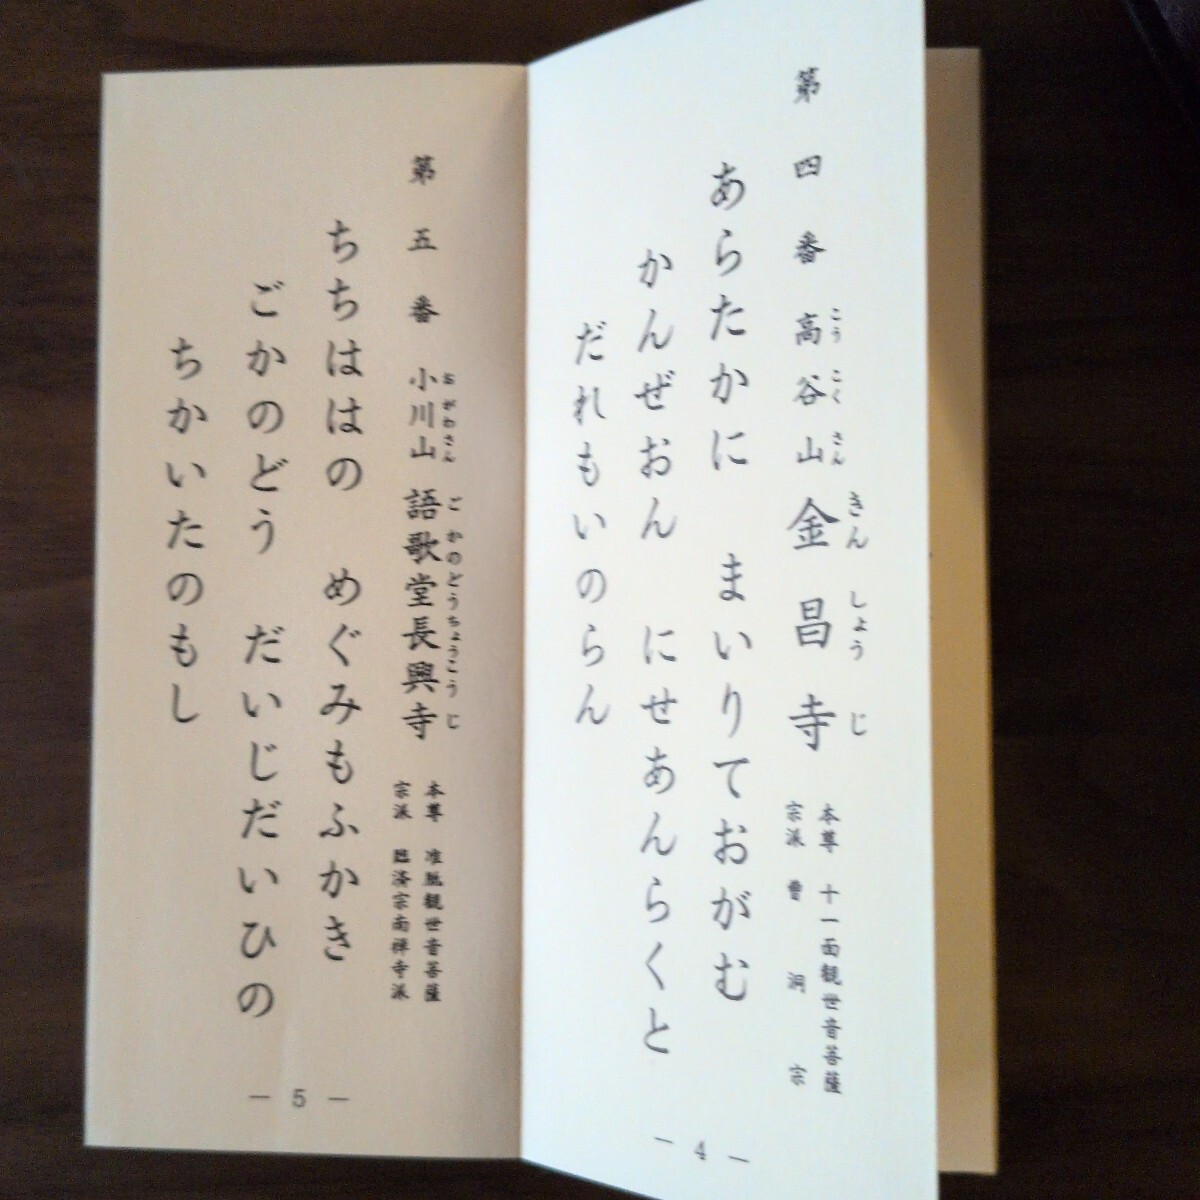 第四番 高谷山 金昌寺
こうこくさん きんしょうじ
本尊 十一面観世音菩薩
宗派 曹洞宗
あらたかに まいりておがむ
かんぜおん にせあんらくと
だれもいのらん
― 4 ―
第五番 小川山 語歌堂長興寺
おがわさん ごかのどうちょうこうじ
本尊 准胝観世音菩薩
宗派 臨済宗南禅寺派
ちちははの めぐみもふかき
ごかのどう だいじだいひの
ちかいたのもし
― 5 ―